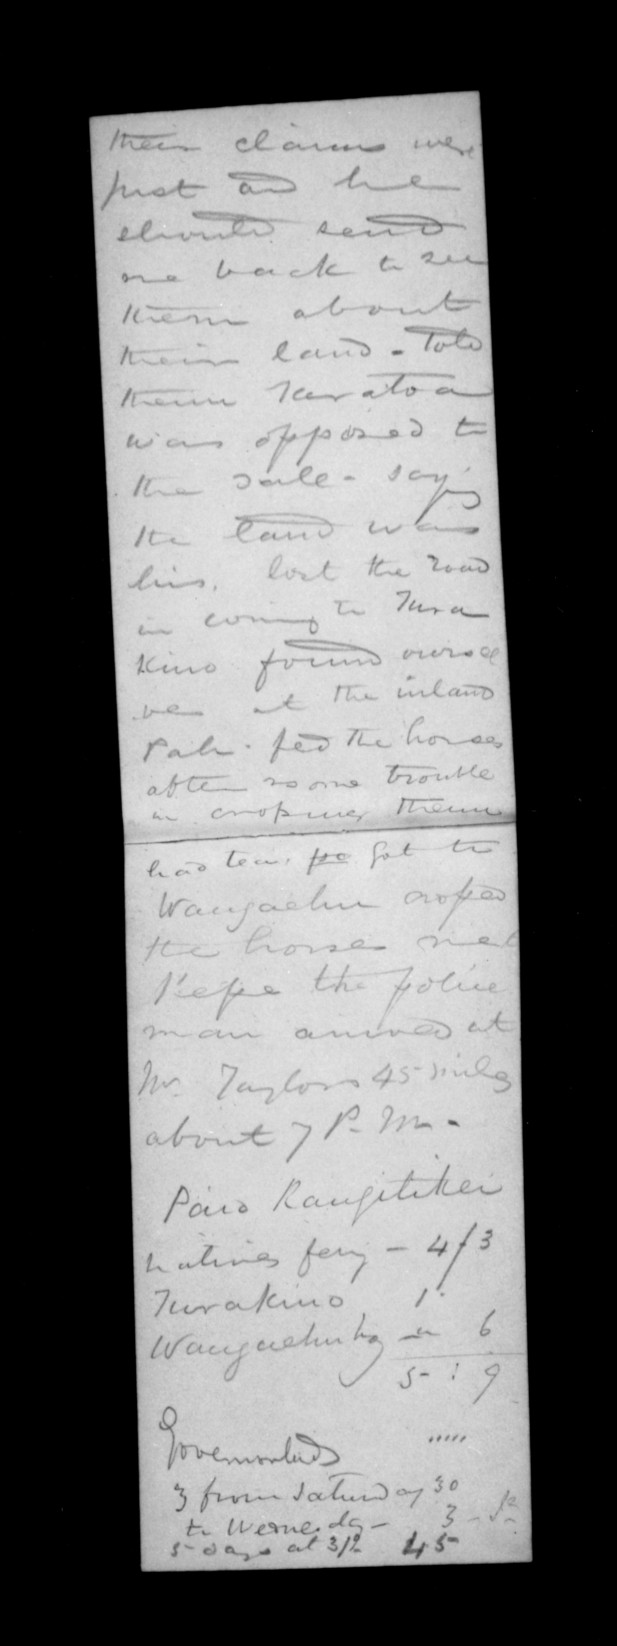 their claims were
just and he
should send
me back to see
them about
their land - Told
them
was opposed to
the sale - say'g
the land was
his. lost the road
in coming to Tura
kino found oursel
ves at the inland
Pah. fed the horses
after some trouble
in crossing them
had tea. Got to
Wangaehu crossed
the horses met
Kepe the police
man arrived at
Mr. Taylors 45 miles
about 7 P. M. -
Paid Rangitikei
natives ferry - 4/3
Turakino 1
Wangaehu 6
5 : 9
3 from Saturday 30
to Wednesday - 3
5 days at 3/2 45